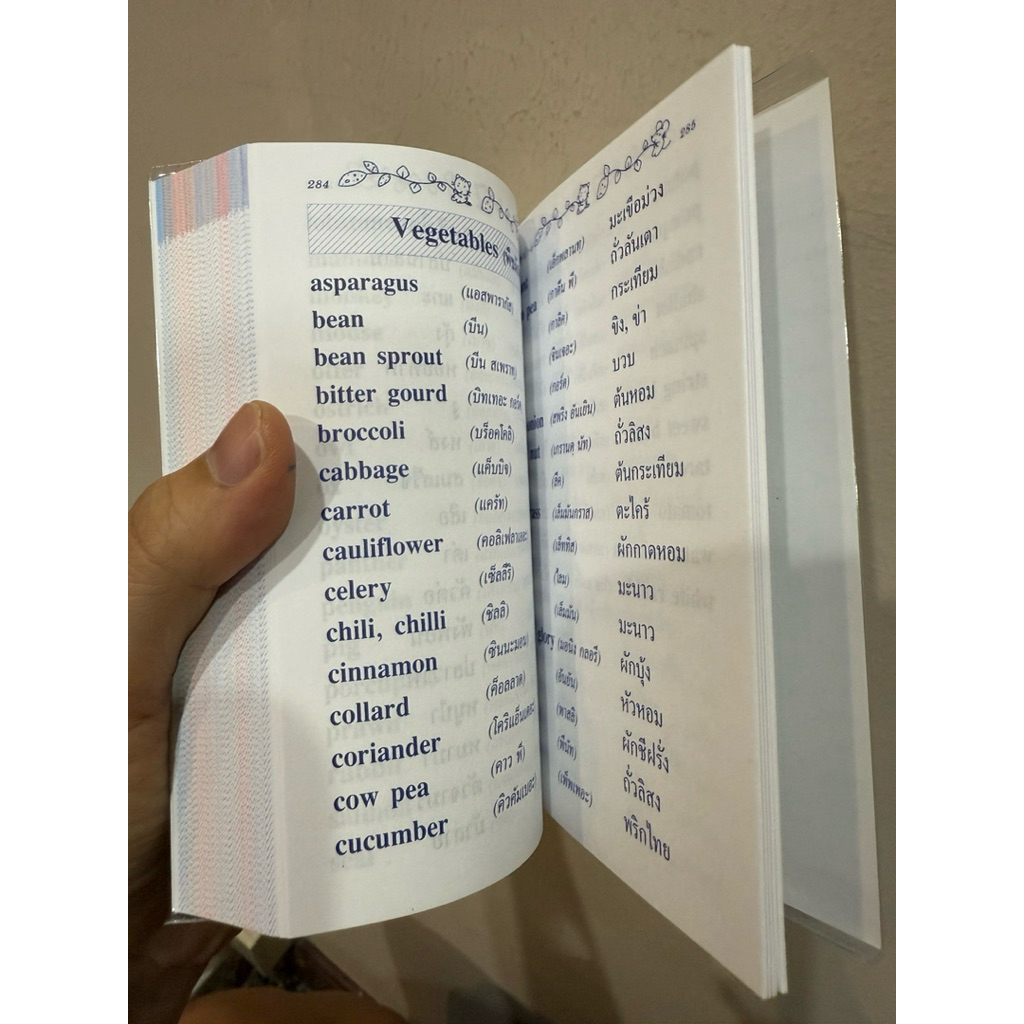 284
Vegetables
asparagus (แอสพารากัส)
bean (บีน)
bean sprout (บีน สเพราท)
bitter gourd (บิทเทอะ กอร์ด)
broccoli (บร็อคโคลิ)
cabbage (แค็บบิจ)
carrot (แคร้ท)
cauliflower (คอลิเฟลาเออะ
celery (เซ็ลลีรี)
chili, chilli (ชิลลิ)
cinnamon (ซินนะมอน)
collard (ค็อลลาด)
coriander (โคริแอ็นเดอะ
cow pea (คาว พี)
cucumber (คิวคัมเบอะ)
285
(เอ็กพลานท) มะเขือม่วง
pea (กาดึน พี) ถั่วลันเตา
(กาลิค) กระเทียม
(จินเจอะ) ขิง, ข่า
(กอร์ด) บวบ
onion (สพริง อันเยิน) ต้นหอม
nut (เกรานดฺ นัท) ถั่วลิสง
(ลีค) ต้นกระเทียม
(เล็มมันกราส) ตะไคร้
(เล็ททิส) ผักกาดหอม
(ไลม) มะนาว
(เล็มมัน) มะนาว
glory (มอนิง กลอรี) ผักบุ้ง
(อันยัน) หัวหอม
(พาสลิ) ผักชีฝรั่ง
(พีนัท) ถั่วลิสง
(เพ็พเพอะ) พริกไทย